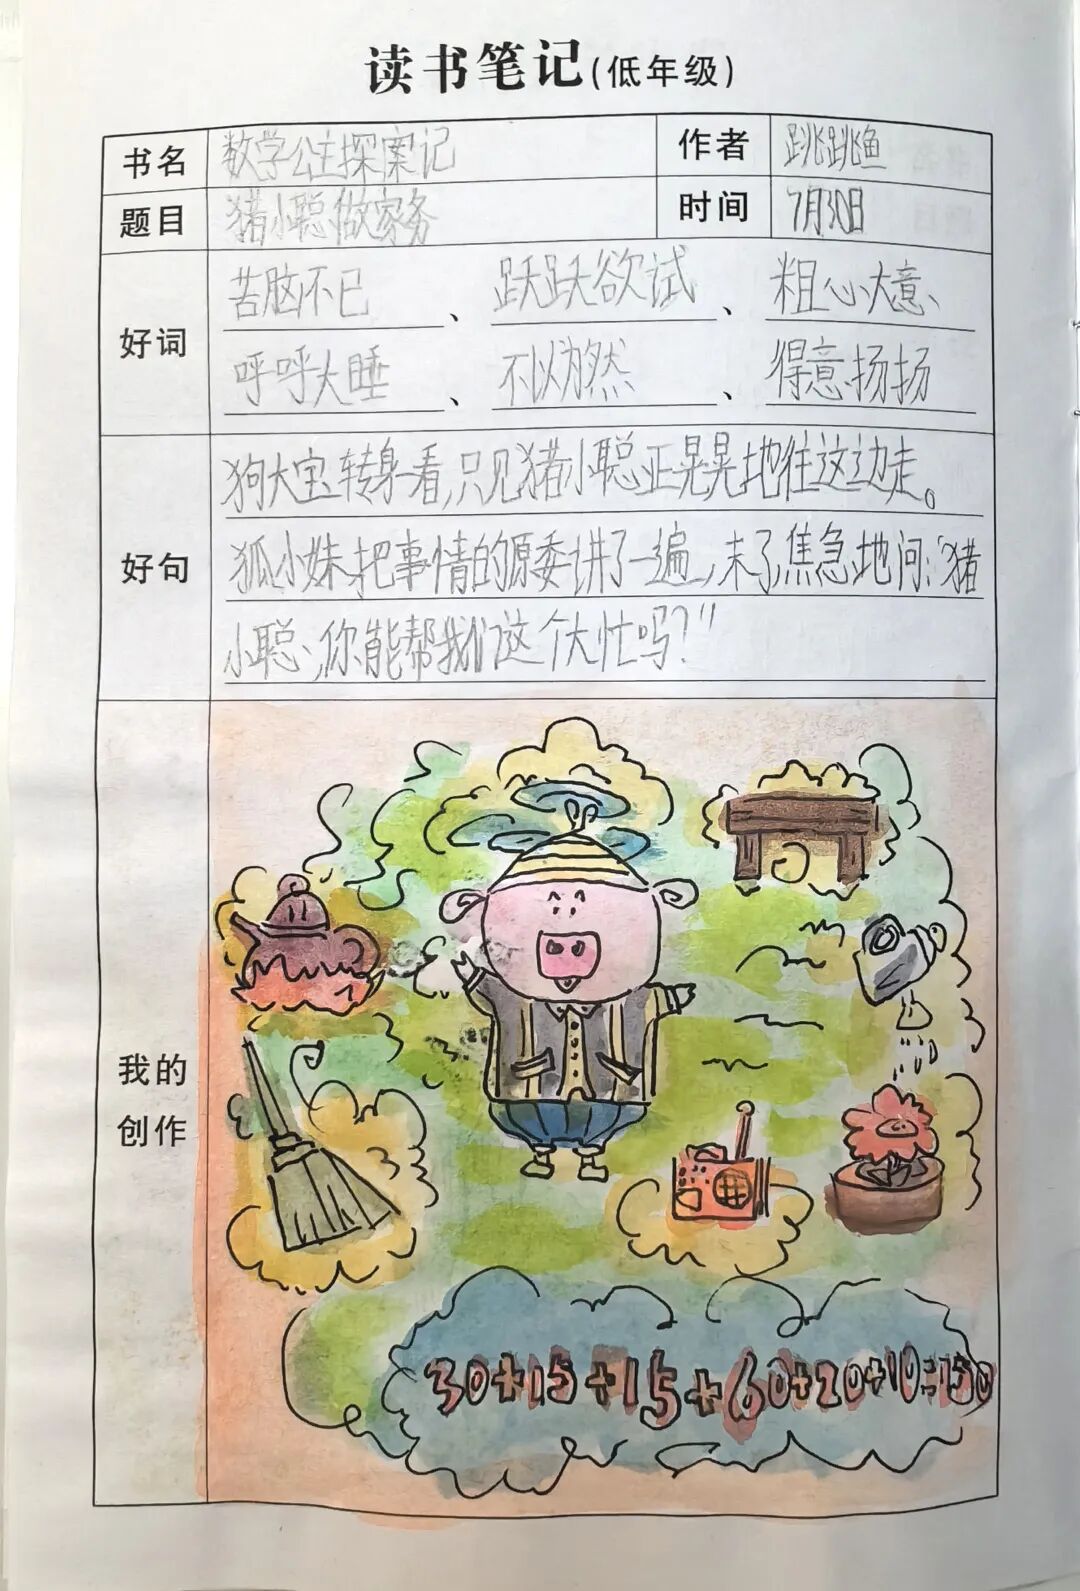 读书笔记(低年级)
书名 数学公主探案记 作者 跳跳鱼
题目 猪小聪做家务 时间 7月30日
好词 苦脑不已、跃跃欲试、粗心大意、
呼呼大睡、不以为然、得意扬扬
好句 狗大宝转身看,只见猪小聪正晃晃地往这边走。
狐小妹把事情的原委讲了一遍,末了,焦急地问:“猪
小聪,你能帮我们这个大忙吗?”
我的
创作
30+15+15+60+20+10=150